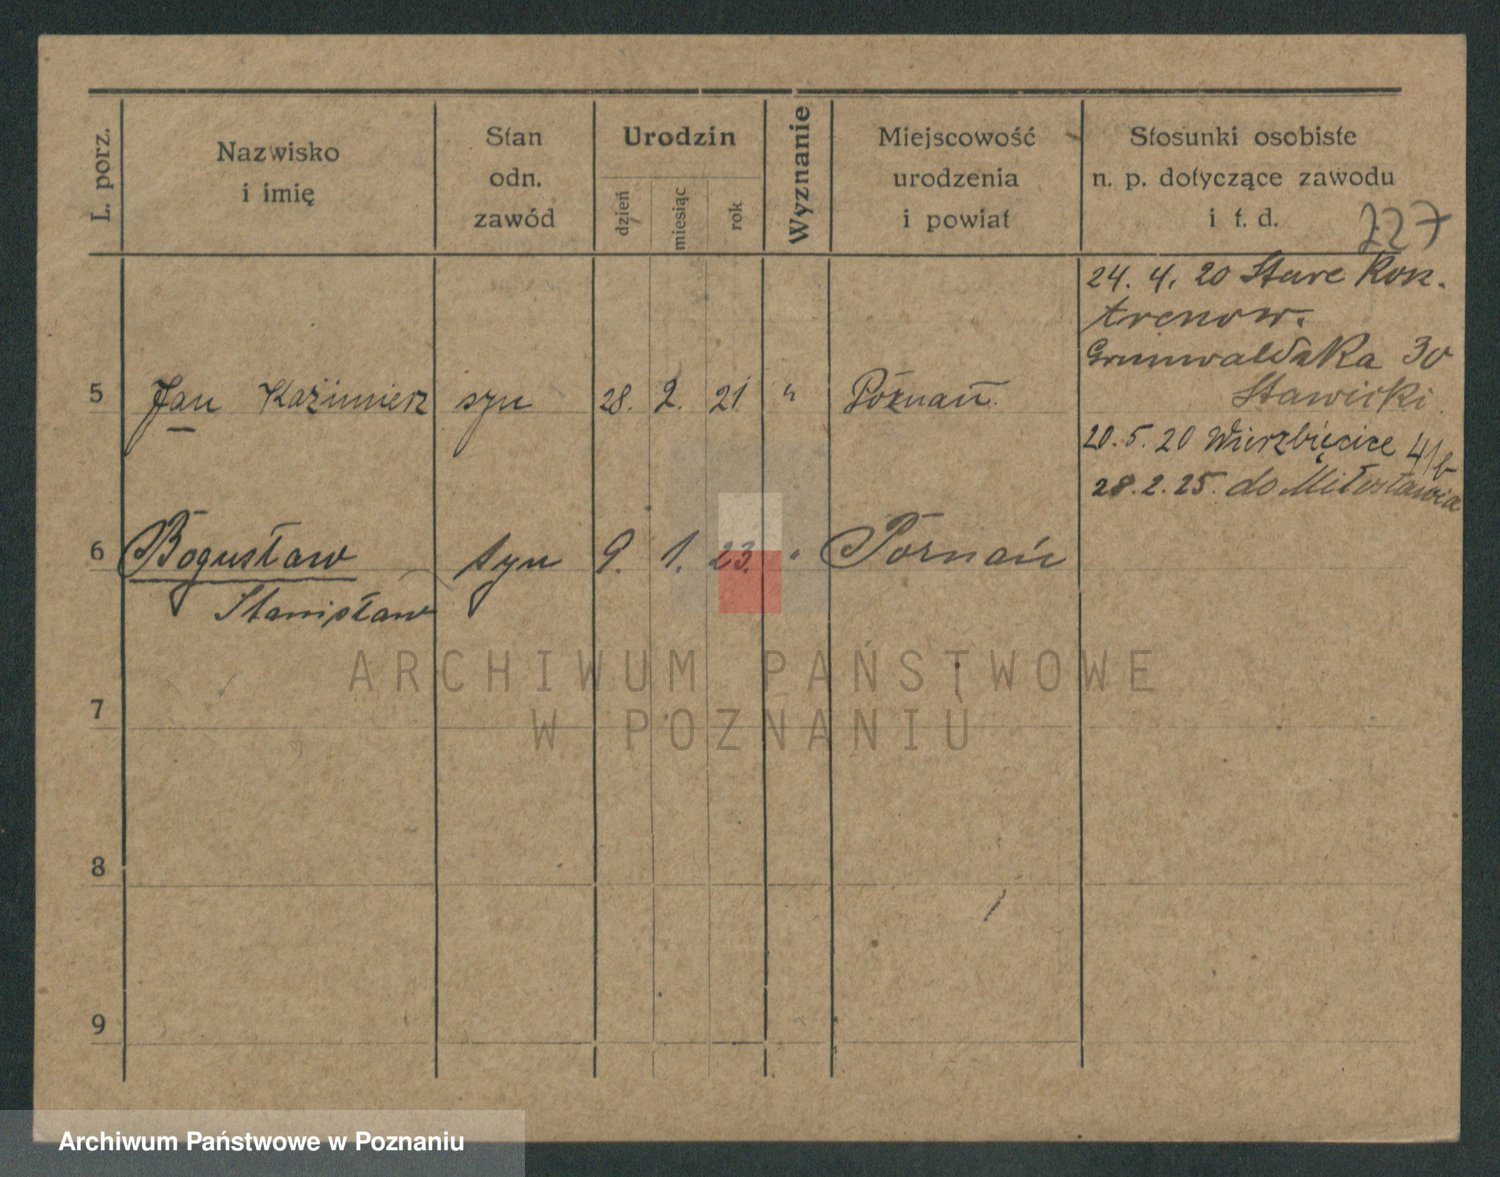 L. porz.
Nazwisko
i imię
Stan
odn.
zawód
Urodzin
dzień
miesiąc
rok
Wyznanie
Miejscowość
urodzenia
i powiat
Stosunki osobiste
n. p. dotyczące zawodu
i t. d.
227
24. 4. 20 Stare Kon.
trenow.
Grunwaldzka 30
Stawicki
5 Jan Kaźimierz syn 28. 2. 21 " Poznań
20. 5. 20 Wierzbięcice 4/b
28. 2. 25. do Miłosławia
6 Bogusław syn 9. 1. 23. " Poznań
Stanisław
ARCHIWUM PAŃSTWOWE
W POZNANIU
7
8
9
Archiwum Państwowe w Poznaniu